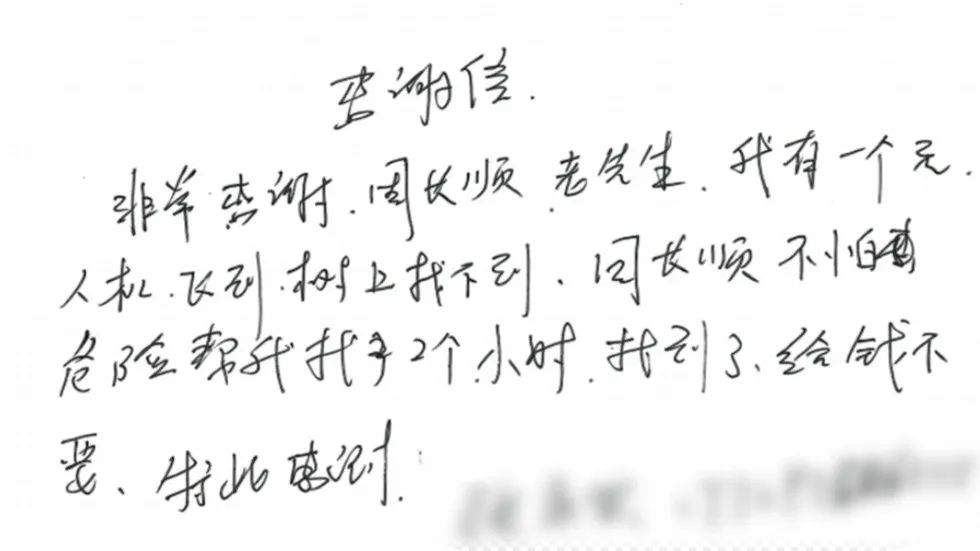 感谢信.
非常感谢.周长顺老先生.我有一个无.
人机.飞到.树上找不到.周长顺不怕
危险帮我找了2个.小时.找到了、给钱不
要、特此感谢.